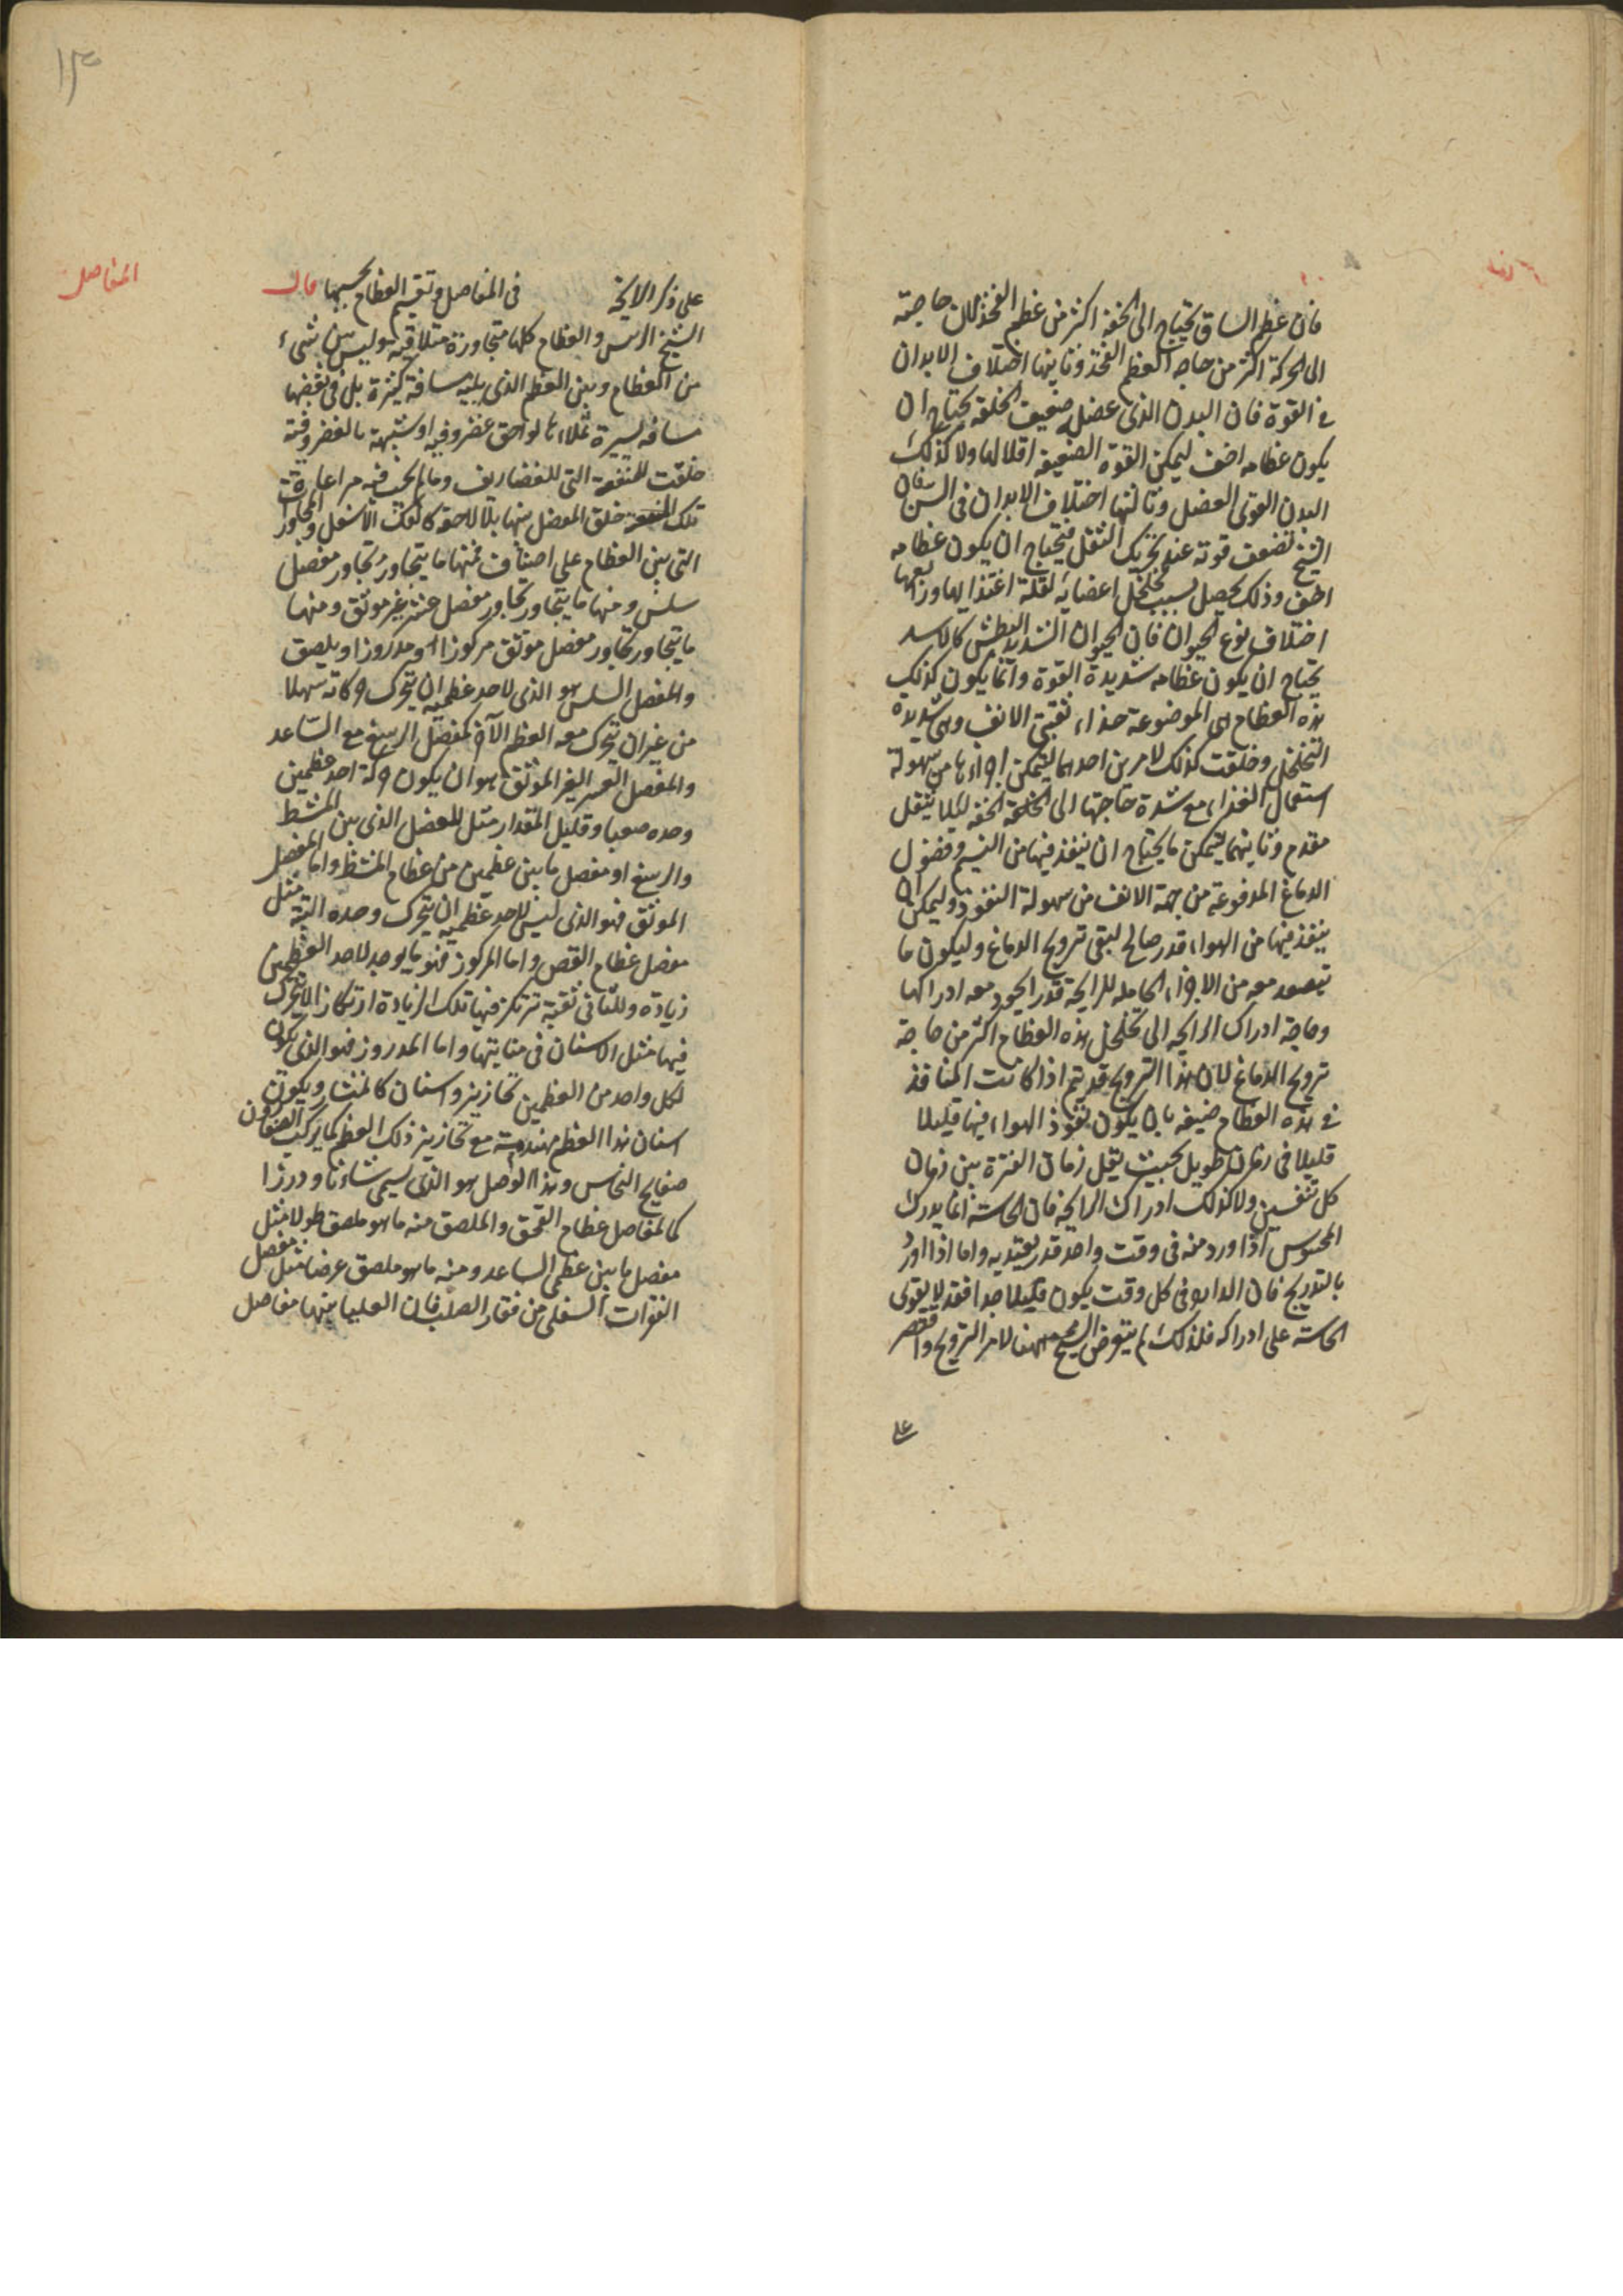 فان عظم الساق يحتاج الى الخفة اكثر من عظم الفخذ لان حاجته
الى الحركة اكثر من حاجة العظم الفخذ وثانيها اختلاف الابدان
في القوة فان البدن الذى عضله ضعيف الخلقة يحتاج ان
يكون عظامه اخف ليمكن القوة الضعيفة اقلالها ولا كذلك
البدن القوى العضل وثالثها اختلاف الابدان فى السن فان
الشيخ تضعف قوته عند تحريك الثقل فيحتاج ان يكون عظامه
اخف وذلك يحصل بسبب تخلخل اعضائه لقلة اغتذائها ورابعها
اختلاف نوع الحيوان فان الحيوان الشديد البطش كالاسد
يحتاج ان يكون عظامه شديدة القوة وانما يكون كذلك
هذه العظام هى الموضوعة حذاء ثقبتى الانف وهى شديدة
التخلخل وخلقت كذلك لامرين احدهما ليتمكن اجزاءها من سهولة
استعمال الغذاء مع شدة حاجتها الى الخفة لئلا يثقل
مقدم وثانيهما ليتمكن ما يحتاج ان ينفذ فيها من النسيم وفضول
الدماغ المدفوعة من جهة الانف من سهولة النفوذ وليمكن ان
ينفذ فيها من الهواء قدر صالح لبقى ترويح الدماغ وليكون ما
يتصعد معه من الاجزاء الحاملة للرايحة قدر الجود معه ادراكها
وحاجة ادراك الرايحه الى تخلخل هذه العظام اكثر من حاجة
ترويح الدماغ لان هذا الترويح قد يتم اذا كانت المنافذ
في هذه العظام ضيقه بان يكون نفوذ الهواء فيها قليلا
قليلا فى زمان طويل بحيث يقل زمان الفترة بين زمان
كل نفسين ولا كذلك ادراك الرايحة فان الحاسة انما يدرك
المحسوس اذا ورد منه فى وقت واحد قدر يعتد به واما اذا اورد
بالتدريج فان الوارد فى كل وقت يكون قليلا جدا فقد لا يقوى
الحاسة على ادراكه فلذلك لم يتعرض الشيخ ههنا لامر الترويح واقتصر
على
١٣
المفاصل
على ذكر الرايحة فى المفاصل وتقسيم العظام بحسبها قال
الشيخ الرئيس والعظام كلها متجاورة متلاقية وليس بين شىء
من العظام وبين العظم الذى يليه مسافة كثيرة بل فى بعضها
مسافه يسيرة تملاءها لواحق غضروفيه او شبيهة بالغضروفية
خلقت للمنفعة التى للغضاريف وما لم يجب فيه مراعاة
تلك المنفعة خلق المفصل بينها بلا لاحقة كالفك الاسفل والمجاورات
التى بين العظام على اصناف فمنها ما يتجاور تجاور مفصل
سلس ومنها ما يتجاور تجاور مفصل عسر غير موثق ومنها
ما يتجاور تجاور مفصل موثق مركوز او مدروز او ملصق
والمفصل السلس هو الذى لاحد عظميه ان يتحرك حركاته سهلا
من غير ان يتحرك معه العظم الآخر كمفصل الرسغ مع الساعد
والمفصل العسر الغير الموثق هو ان يكون حركة احد عظمين
وحده صعبا وقليل المقدار مثل المفصل الذى بين المشط
والرسغ او مفصل ما بين عظمين من عظام المشط واما المفصل
الموثق فهو الذى ليس لاحد عظميه ان يتحرك وحده البتة مثل
مفصل عظام القص واما المركوز فهو ما يوجد لاحد العظمين
زيادة وللثانى ثقبة ترتكز فيها تلك الزيادة ارتكازا لا يتحرك
فيها مثل الاسنان فى منابتها واما المدروز فهو الذى يكون
لكل واحد من العظمين تحازيز واسنان كالمنشار ويكون
اسنان هذا العظم مهندمة مع تحازيز ذلك العظم كما يركب الصفارون
صفايح النحاس وهذا الوصل هو الذى يسمى شانا ودرزا
كالمفاصل عظام القحف والملصق منه ما هو ملصق طولا مثل
مفصل ما بين عظمى الساعد ومنه ما هو ملصق عرضا مثل مفصل
الفقرات السفلى من فقار الصلب فان العليا منها مفاصل